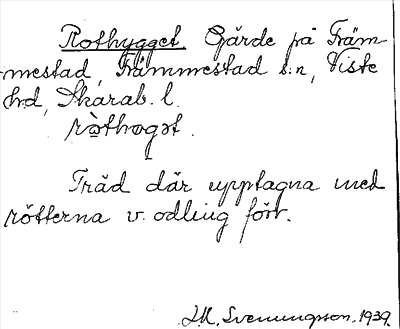 Rothygget. Gärde på Främ-
mestad, Främmestad s:n, Viste
h:d, Skarab. l.
ròthogət.
Träd där upptagna med
rötterna v. odling förr.
J.M. Svenningson. 1939.